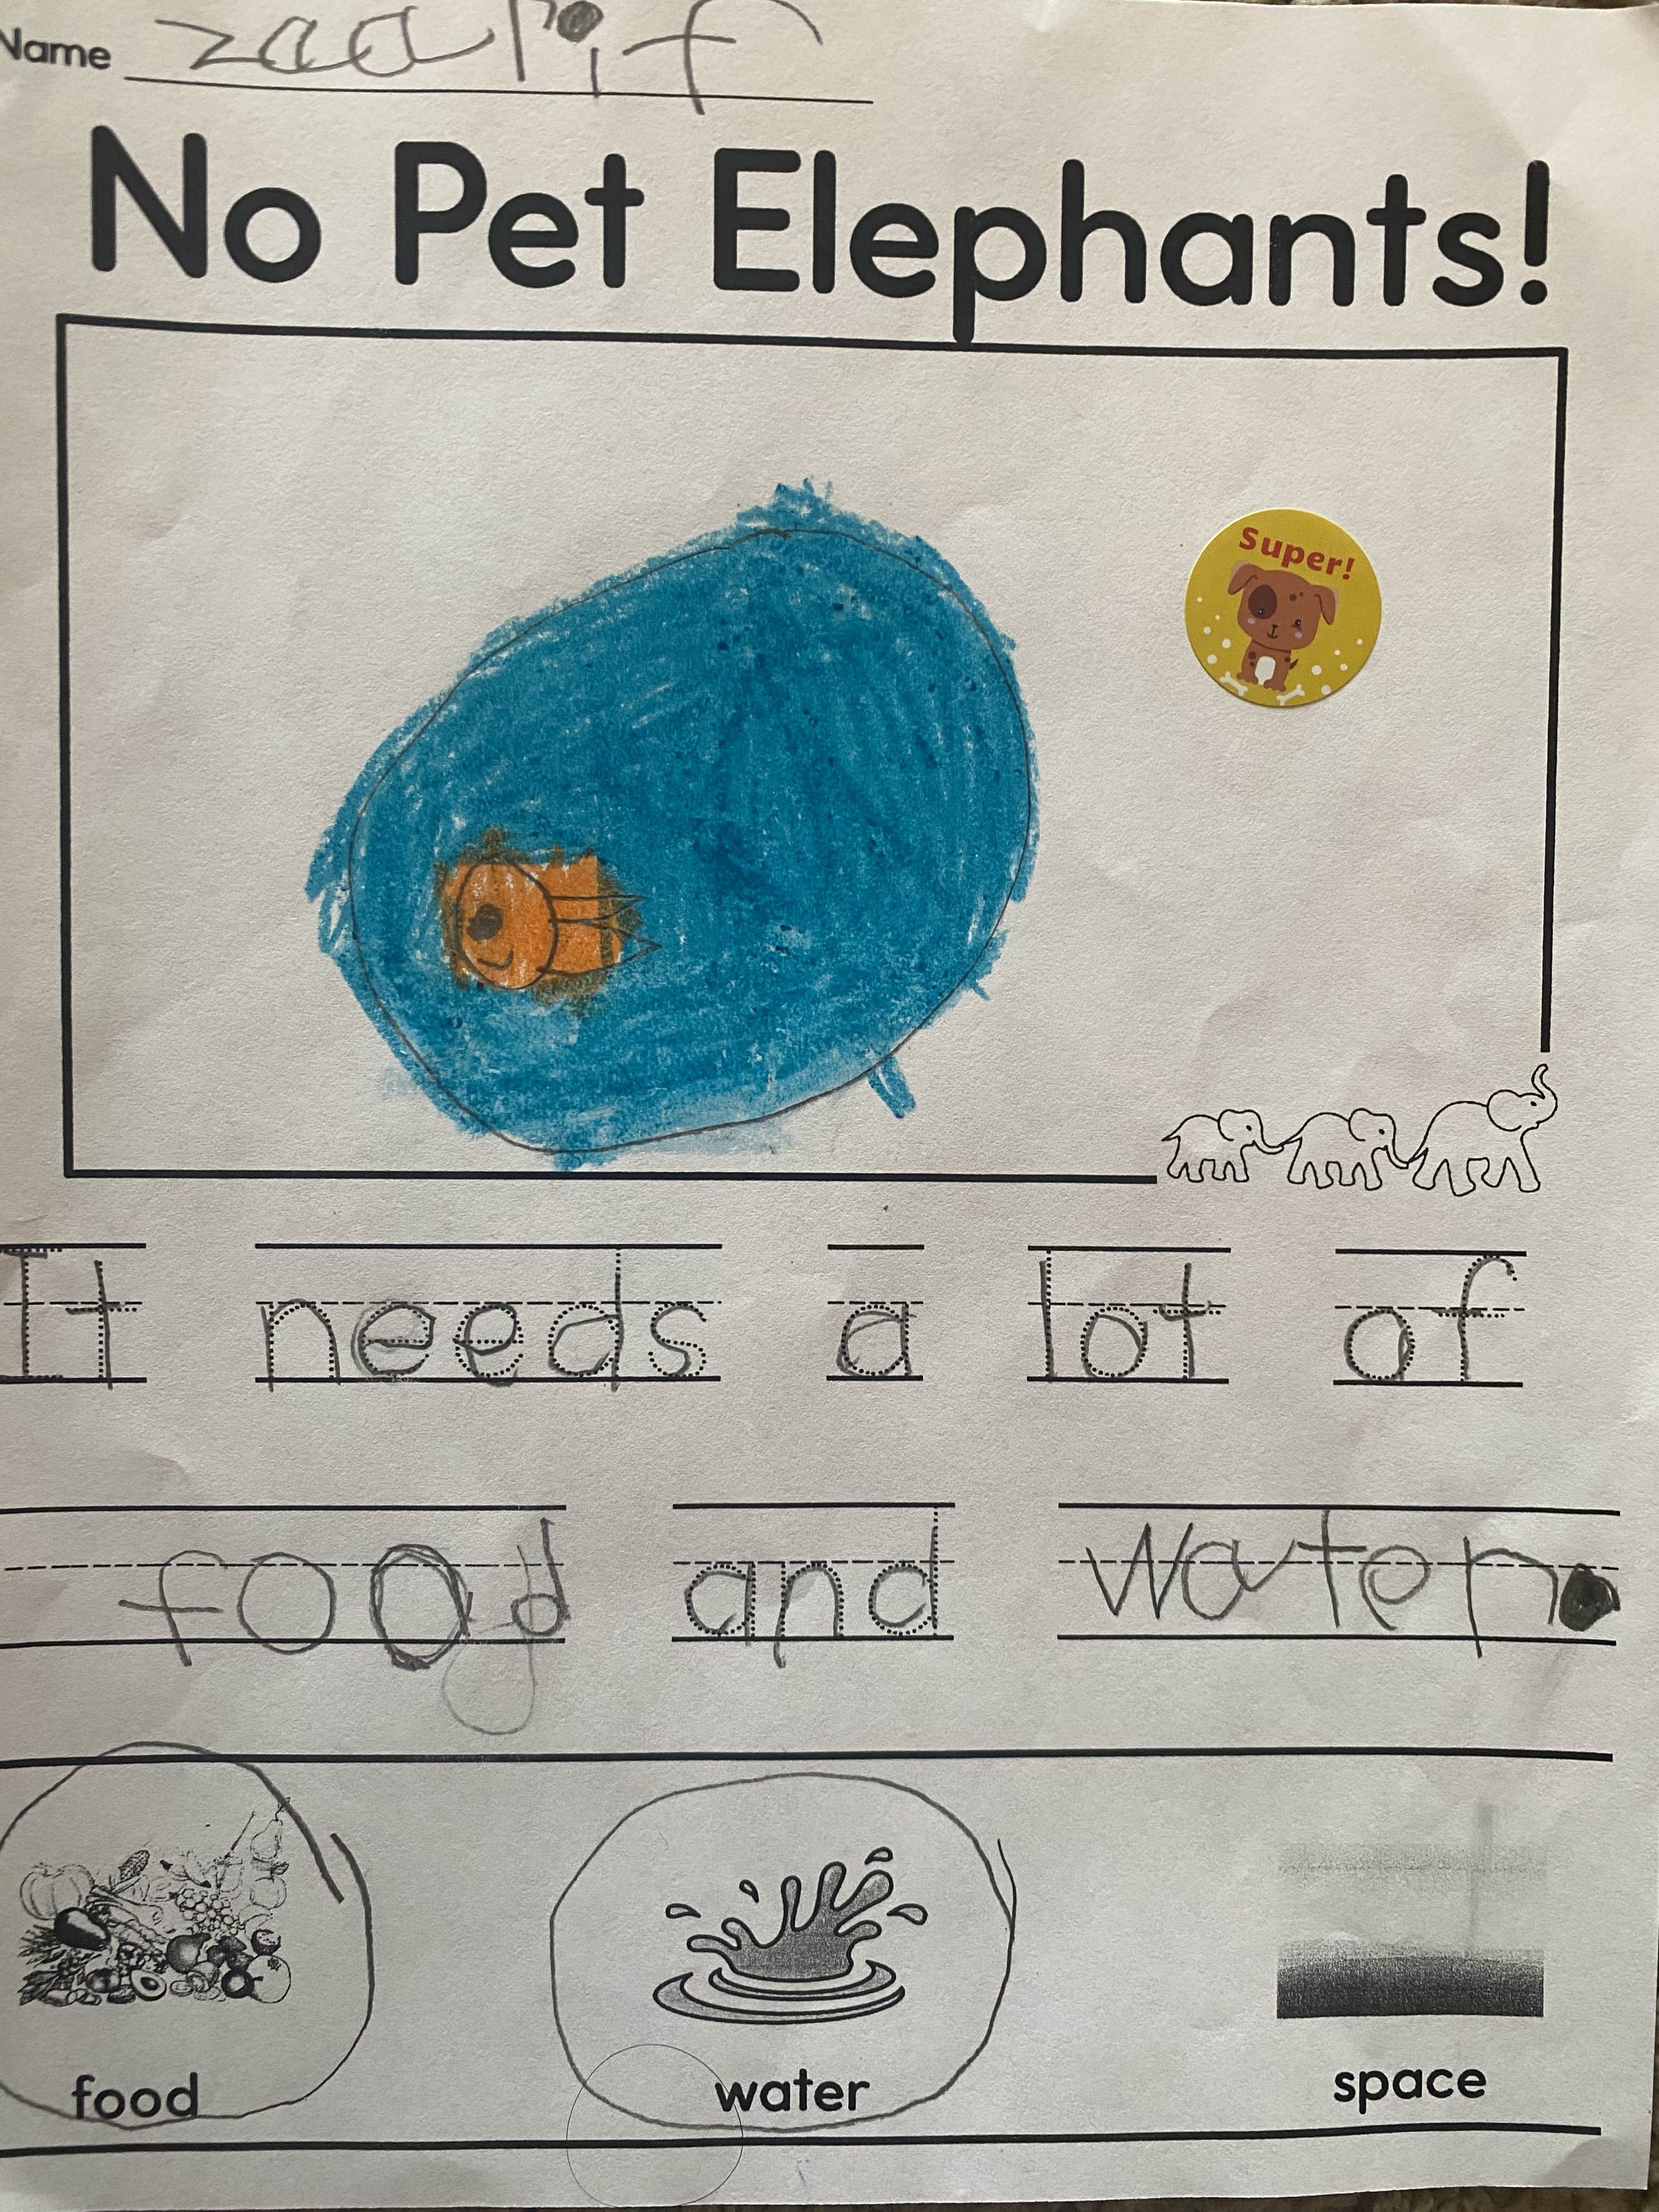 Name zaarif
No Pet Elephants!
Super!
It needs a lot of
food and water.
food water space